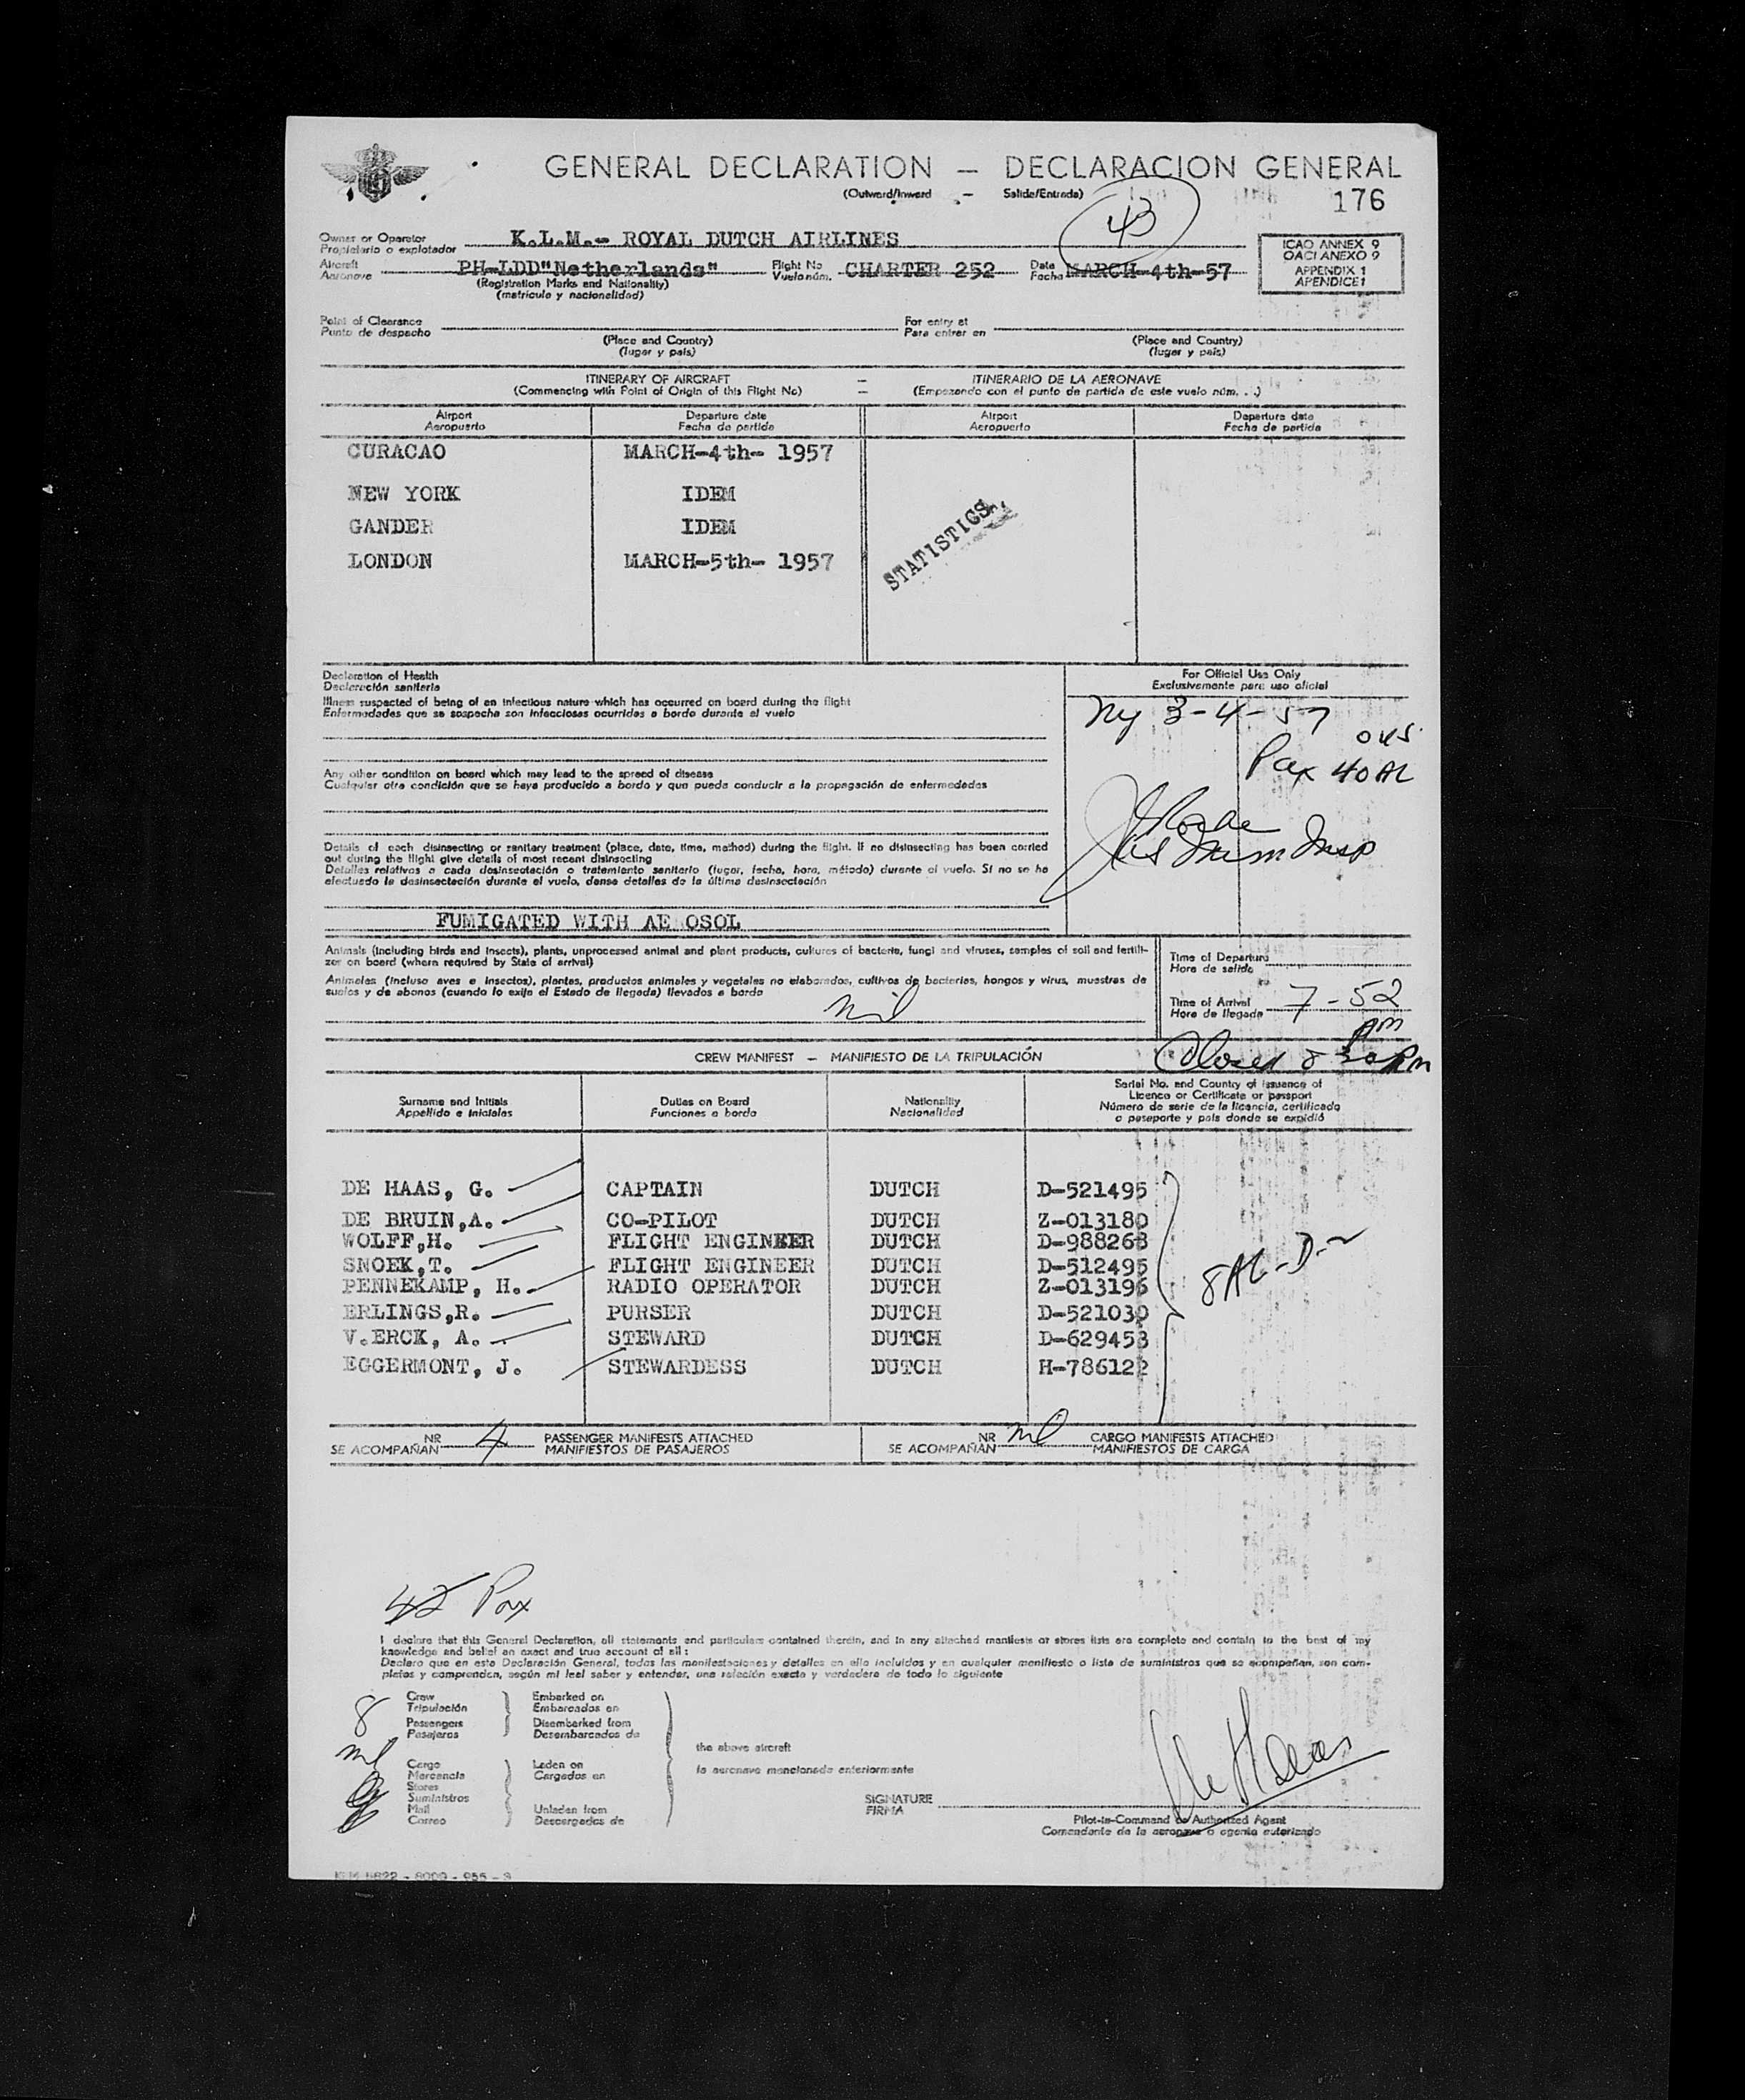 GENERAL DECLARATION — DECLARACION GENERAL
(Outward/Inward - Salida/Entrada)
176
43
Owner or Operator
Propietario o explotador
K.L.M.- ROYAL DUTCH AIRLINES
Aircraft
Aeronave
PH-LDD"Netherlands"
(Registration Marks and Nationality)
(matricula y nacionalidad)
Flight No
Vuelo núm.
CHARTER 252
Date
Fecha
MARCH-4th-57
ICAO ANNEX 9
OACI ANEXO 9
APPENDIX 1
APENDICE 1
Point of Clearance
Punto de despacho
(Place and Country)
(lugar y país)
For entry at
Para entrar en
(Place and Country)
(lugar y país)
ITINERARY OF AIRCRAFT — ITINERARIO DE LA AERONAVE
(Commencing with Point of Origin of this Flight No) — (Empezando con el punto de partida de este vuelo núm. . .)
Airport Departure date Airport Departure date
Aeropuerto Fecha de partida Aeropuerto Fecha de partida
CURACAO MARCH-4th- 1957
NEW YORK IDEM
GANDER IDEM
LONDON MARCH-5th- 1957
STATISTICS
Declaration of Health
Declaración sanitaria
Illness suspected of being of an infectious nature which has occurred on board during the flight
Enfermedades que se sospecha son infecciosas ocurridas a bordo durante el vuelo
Any other condition on board which may lead to the spread of disease
Cualquier otra condición que se haya producido a bordo y que pueda conducir a la propagación de enfermedades
Details of each disinsecting or sanitary treatment (place, date, time, method) during the flight. If no disinsecting has been carried
out during the flight give details of most recent disinsecting
Detalles relativos a cada desinsectación o tratamiento sanitario (lugar, fecha, hora, método) durante el vuelo. Si no se ha
efectuado la desinsectación durante el vuelo, danse detalles de la última desinsectación
FUMIGATED WITH AE OSOL
For Official Use Only
Exclusivamente para uso oficial
Ny 3-4-57
Pax 40 AL
Imm Insp
Animals (including birds and insects), plants, unprocessed animal and plant products, cultures of bacteria, fungi and viruses, samples of soil and fertili-
zer on board (where required by State of arrival)
Animales (incluso aves e insectos), plantas, productos animales y vegetales no elaborados, cultivos de bacterias, hongos y virus, muestras de
suelos y de abonos (cuando lo exija el Estado de llegada) llevados a bordo
nil
Time of Departure
Hora de salida
Time of Arrival
Hora de llegada
7-52
pm
Closed 8 30 PM
CREW MANIFEST — MANIFIESTO DE LA TRIPULACIÓN
Surname and Initials
Appellido e Iniciales
Duties on Board
Funciones a bordo
Nationality
Nacionalidad
Serial No. and Country of issuance of
Licence or Certificate or passport
Número de serie de la licencia, certificado
o pasaporte y país donde se expidió
DE HAAS, G. CAPTAIN DUTCH D-521495
DE BRUIN,A. CO-PILOT DUTCH Z-013180
WOLFF,H. FLIGHT ENGINEER DUTCH D-988268
SNOEK,T. FLIGHT ENGINEER DUTCH D-512495
PENNEKAMP, H. RADIO OPERATOR DUTCH Z-013196
ERLINGS,R. PURSER DUTCH D-521030
V.ERCK, A. STEWARD DUTCH D-629453
EGGERMONT, J. STEWARDESS DUTCH H-786122
8 AL-D-
NR
SE ACOMPAÑAN
4
PASSENGER MANIFESTS ATTACHED
MANIFIESTOS DE PASAJEROS
NR
SE ACOMPAÑAN
nil
CARGO MANIFESTS ATTACHED
MANIFIESTOS DE CARGA
42 Pax
I declare that this General Declaration, all statements and particulars contained therein, and in any attached manifests or stores lists are complete and contain to the best of my
knowledge and belief an exact and true account of all :
Declaro que en esta Declaración General, todas las manifestaciones y detalles en ella incluidos y en cualquier manifiesto o lista de suministros que se acompañan, son com-
pletas y comprenden, según mi leal saber y entender, una relación exacta y verdadera de todo lo siguiente
8
Crew
Tripulación
Passengers
Pasajeros
Embarked on
Embarcados en
Disembarked from
Desembarcados de
nil
Cargo
Mercancía
Stores
Suministros
Mail
Correo
Laden on
Cargados en
Unladen from
Descargados de
the above aircraft
la aeronave mencionada anteriormente
SIGNATURE
FIRMA
de Haas
Pilot-in-Command or Authorized Agent
Comandante de la aeronave o agente autorizado